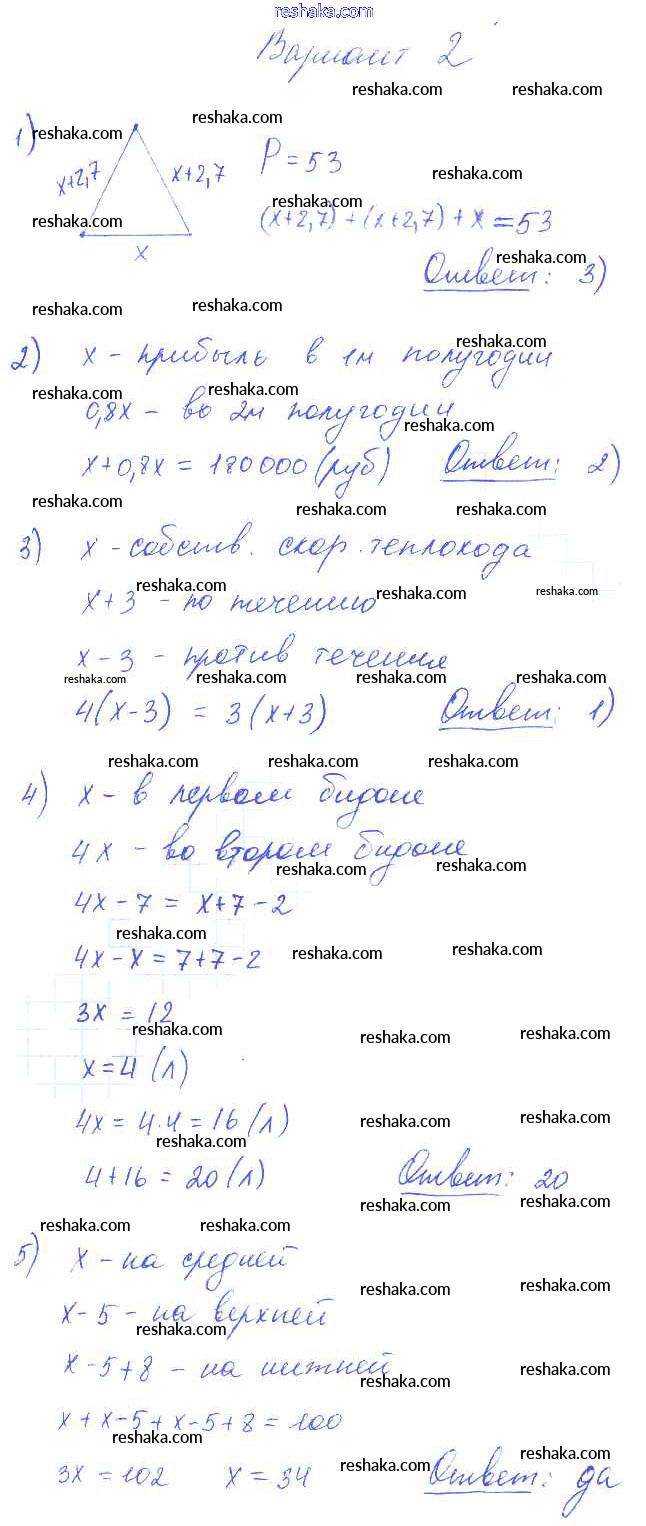 reshaka.com
Вариант 2
reshaka.com reshaka.com
1) reshaka.com reshaka.com
x+2,7 x+2,7 P = 53
reshaka.com
reshaka.com
reshaka.com (x+2,7) + (x+2,7) + x = 53
x
reshaka.com
Ответ: 3)
reshaka.com reshaka.com
reshaka.com
2) x - прибыль в 1м полугодии
reshaka.com reshaka.com
0,8x - во 2м полугодии
reshaka.com
x+0,8x = 180000 (руб) Ответ: 2)
reshaka.com reshaka.com reshaka.com
3) x - собств. скор. теплохода
reshaka.com reshaka.com reshaka.com
x+3 - по течению
x-3 - против течения
reshaka.com reshaka.com reshaka.com reshaka.com
4(x-3) = 3(x+3) Ответ: 1)
reshaka.com reshaka.com reshaka.com
4) x - в первом бидоне
4x - во втором бидоне
reshaka.com reshaka.com
4x - 7 = x+7-2
reshaka.com reshaka.com reshaka.com
4x - x = 7+7-2
3x = 12
reshaka.com reshaka.com reshaka.com
x = 4 (л)
4x = 4·4 = 16 (л)
reshaka.com reshaka.com reshaka.com
4+16 = 20 (л) Ответ: 20
reshaka.com reshaka.com
reshaka.com reshaka.com
5) x - на средней
reshaka.com reshaka.com
x-5 - на верхней
reshaka.com
x-5+8 - на нижней
reshaka.com reshaka.com
x + x-5 + x-5+8 = 100
reshaka.com reshaka.com reshaka.com
3x = 102 x = 34 Ответ: да